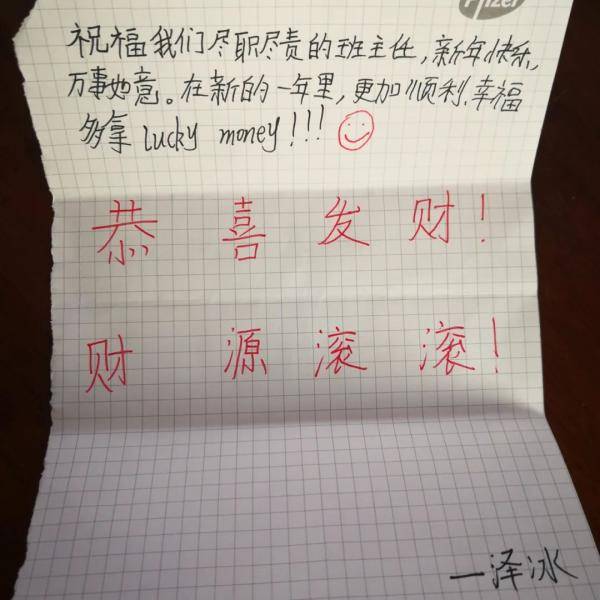 Pfizer
祝福我们尽职尽责的班主任，新年快乐，
万事如意。在新的一年里，更加顺利、幸福
多拿 lucky money!!!
恭喜发财！
财源滚滚！
—泽冰